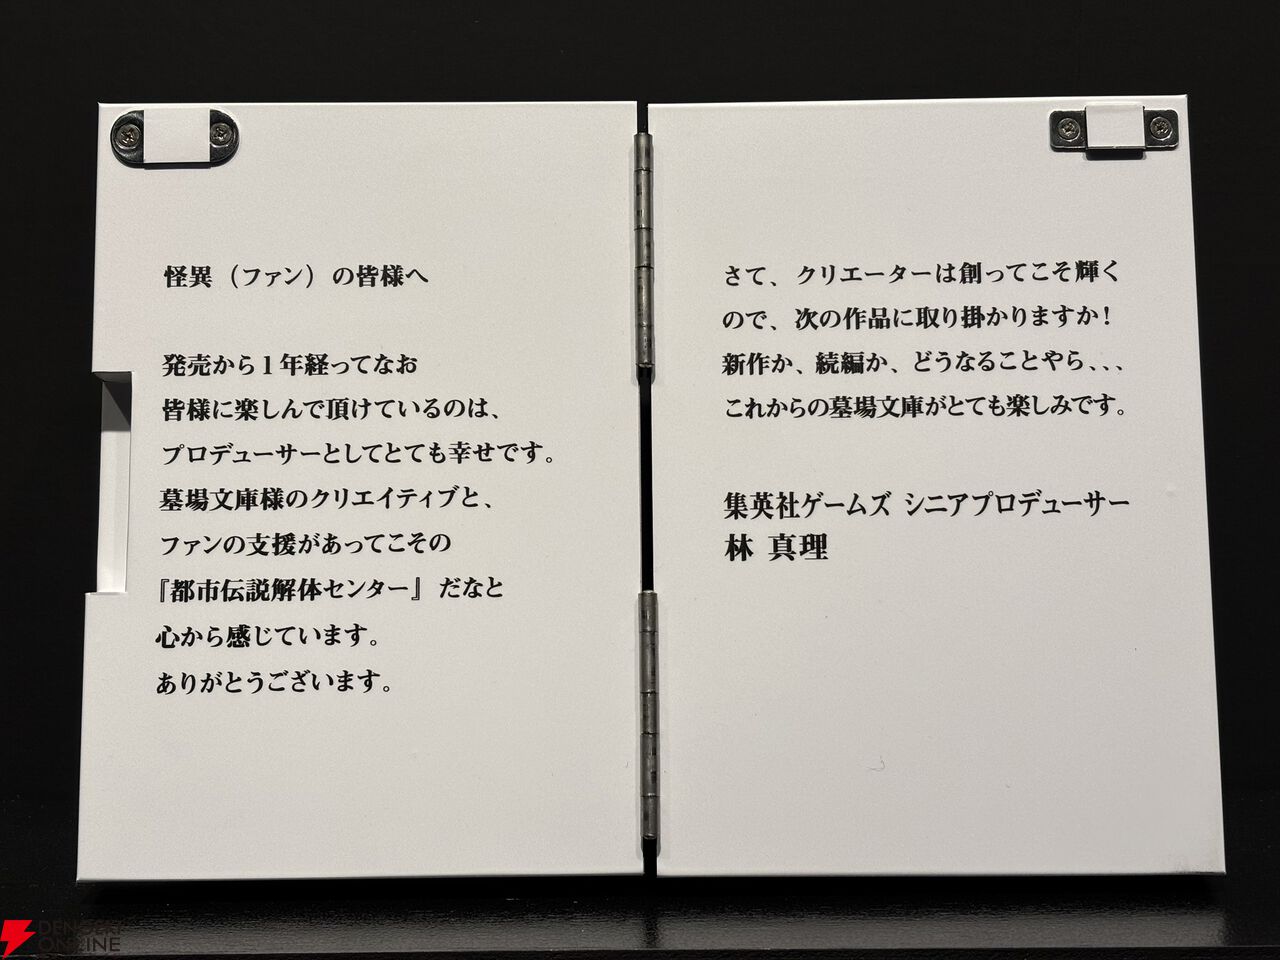 怪異（ファン）の皆様へ
発売から1年経ってなお
皆様に楽しんで頂けているのは、
プロデューサーとしてとても幸せです。
墓場文庫様のクリエイティブと、
ファンの支援があってこその
『都市伝説解体センター』だなと
心から感じています。
ありがとうございます。
さて、クリエーターは創ってこそ輝く
ので、次の作品に取り掛かりますか！
新作か、続編か、どうなることやら、、、
これからの墓場文庫がとても楽しみです。
集英社ゲームズ シニアプロデューサー
林 真理
DENGEKI
ONLINE